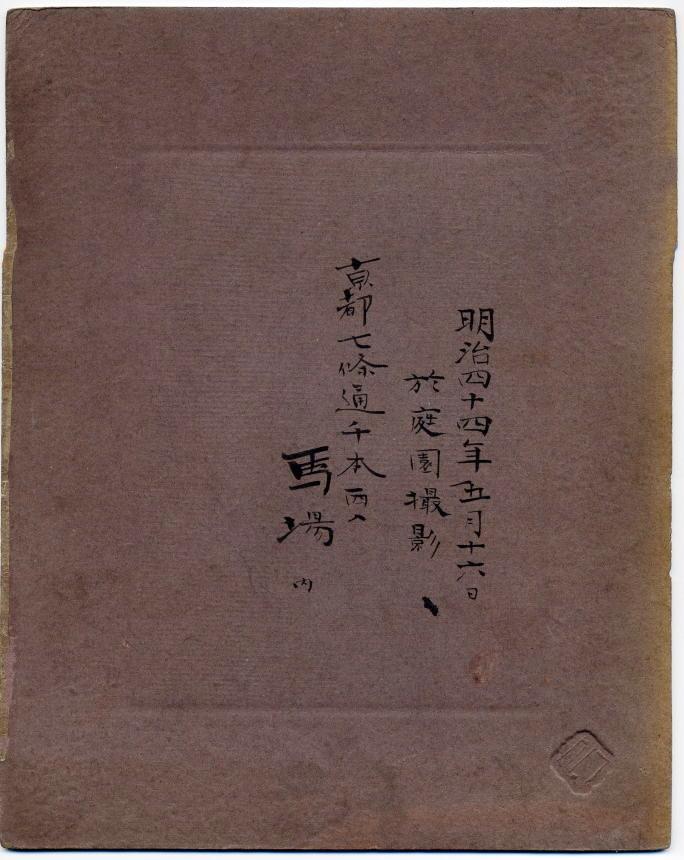 明治四十四年五月十六日
於庭園撮影
京都七條通千本西入
馬場内